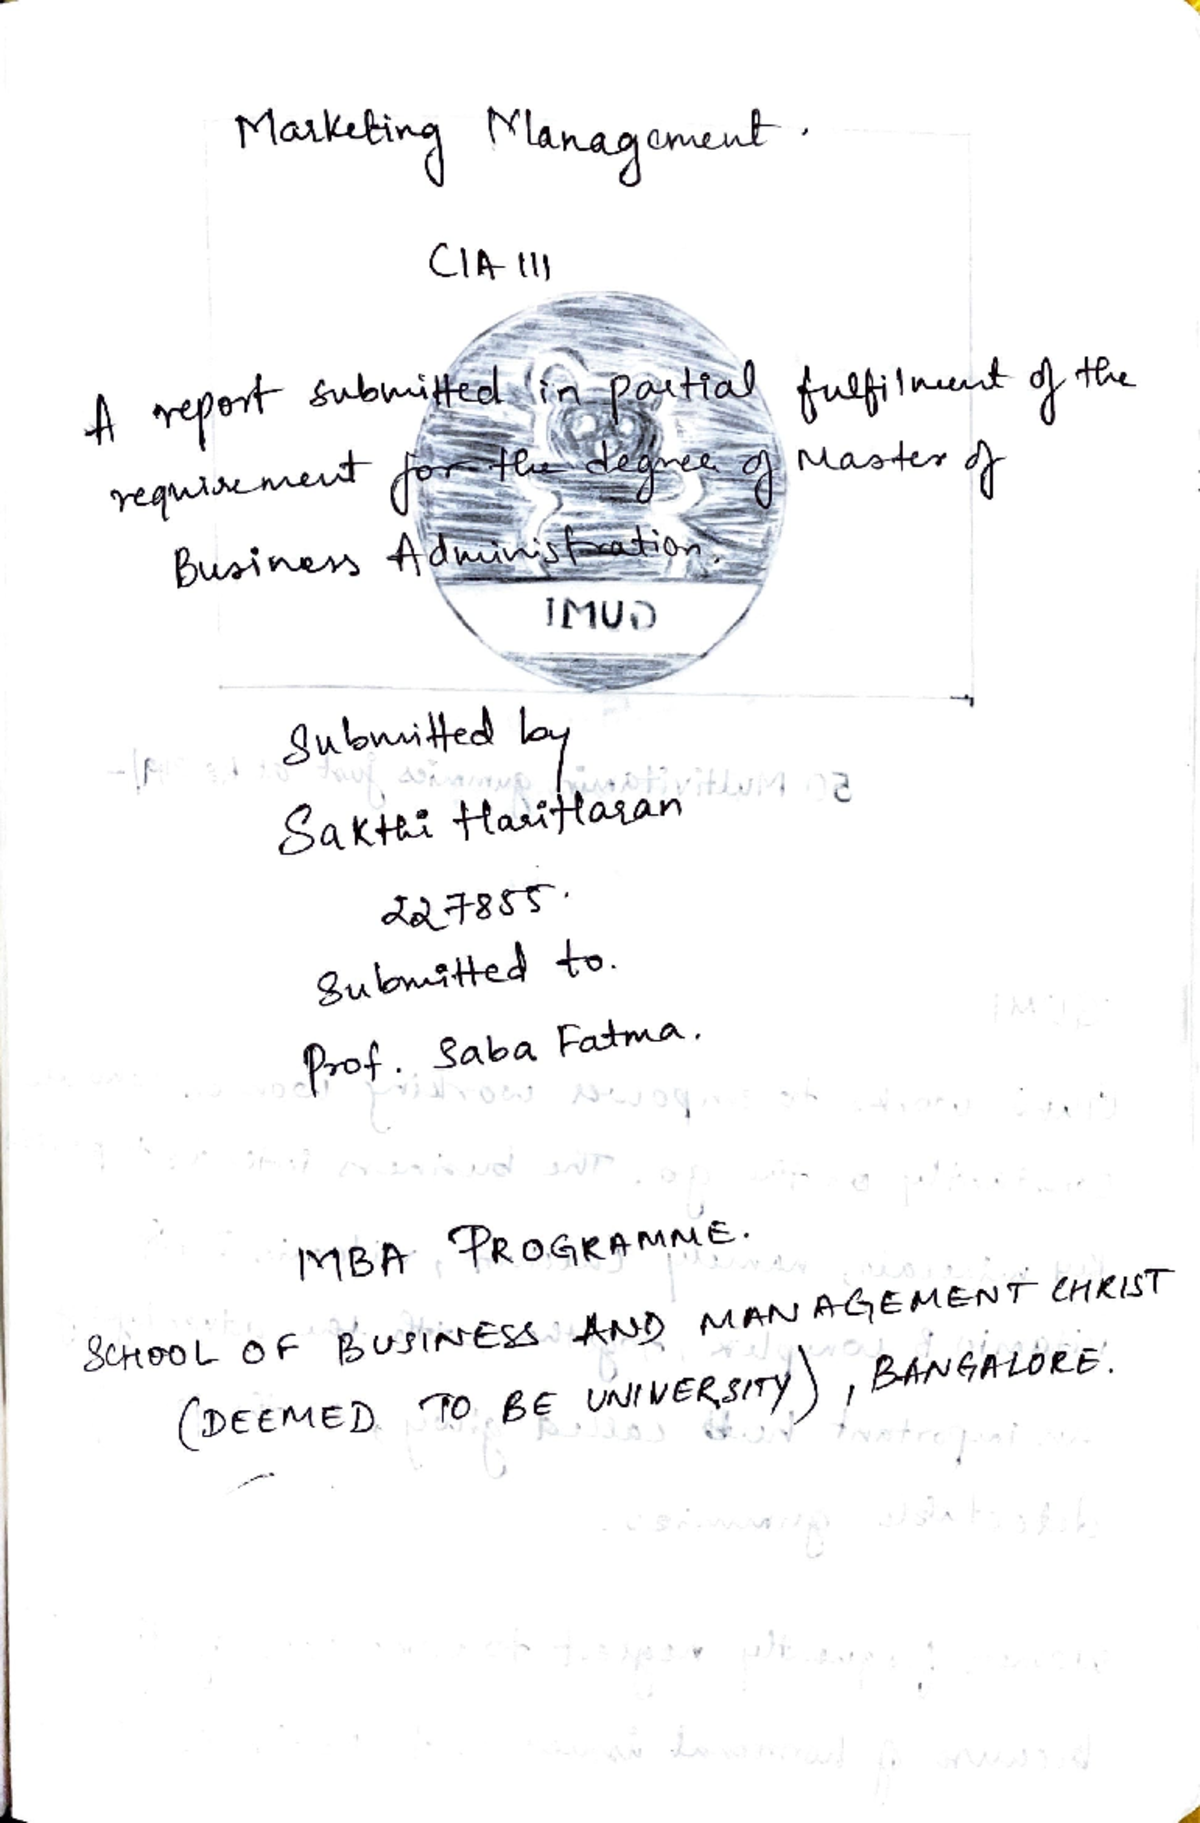 Marketing Management.
CIA III
A report submitted in partial fulfilment of the
requirement for the degree of Master of
Business Administration.
Submitted by
Sakthi HariHaran
227855.
Submitted to.
Prof. Saba Fatma.
MBA PROGRAMME.
SCHOOL OF BUSINESS AND MANAGEMENT CHRIST
(DEEMED TO BE UNIVERSITY), BANGALORE.